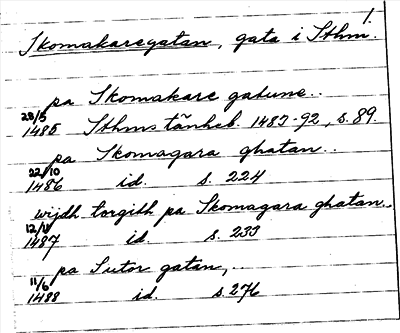 1.
Skomakaregatan, gata i Sthm.
pa Skomakare gatune..
28/5
1485 Sthms tänkeb. 1483-92, s. 89.
pa Skomagara ghatan..
22/10
1486 id. s. 224
wijdh torgith pa Skomagara ghatan..
12/11
1487 id. s. 233
pa Sutor gatan,..
11/6
1488 id. s. 276